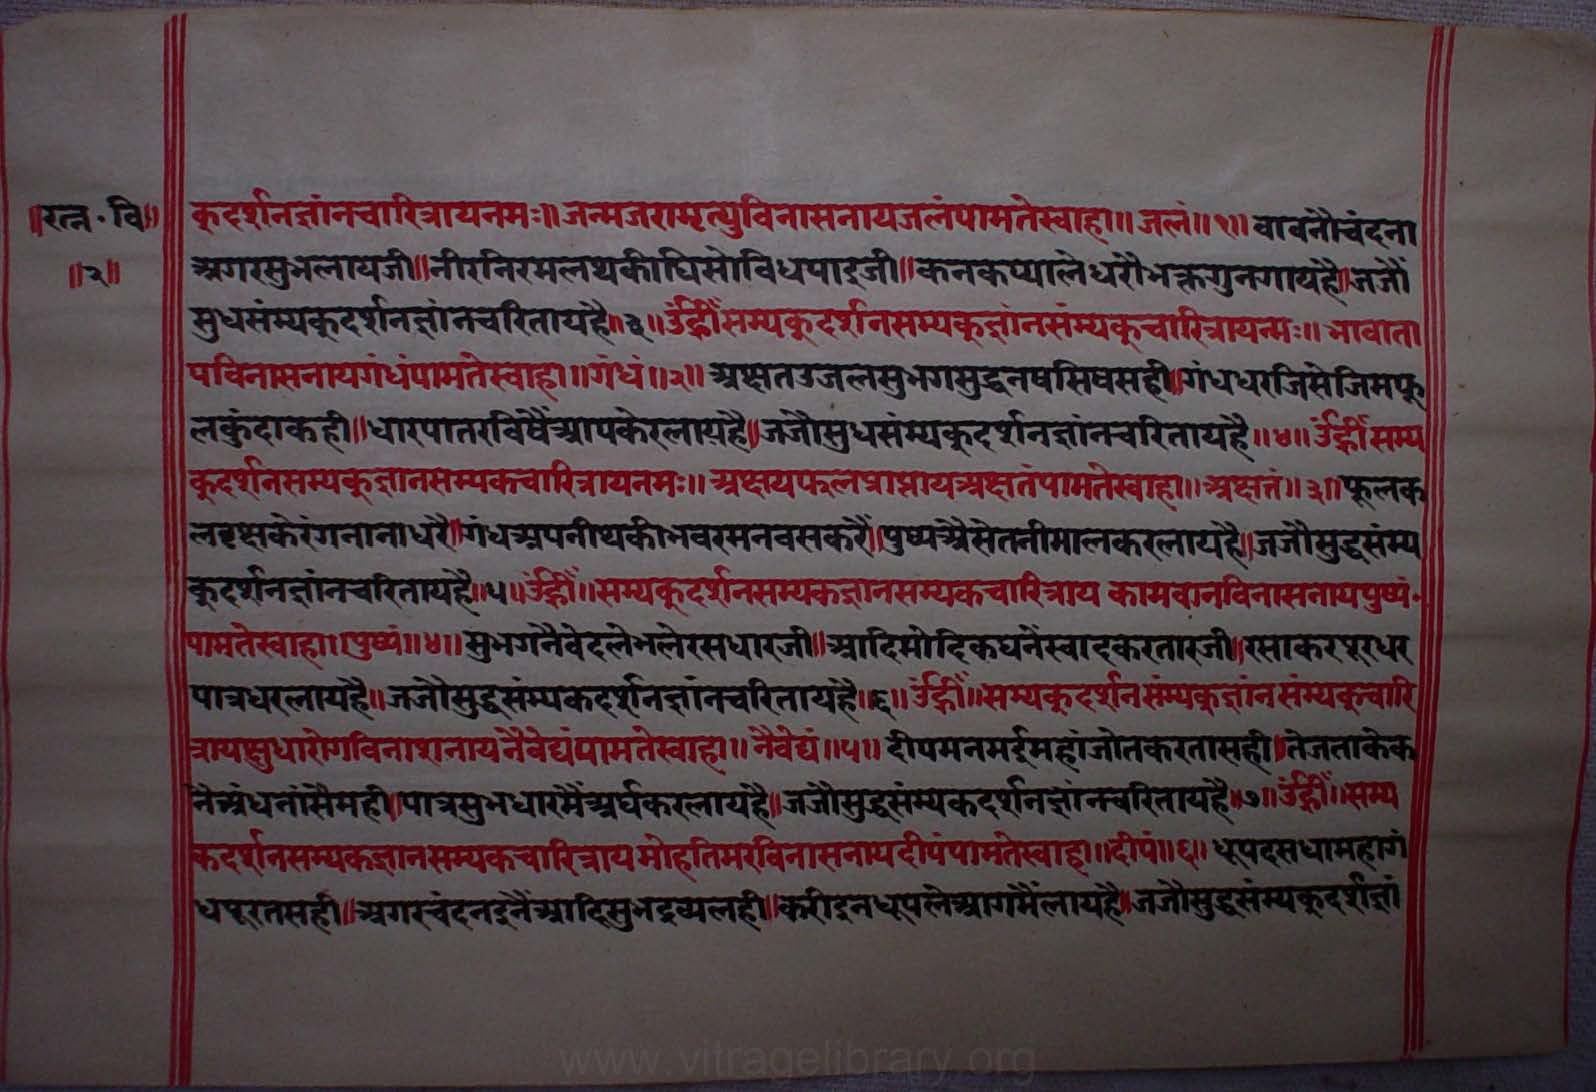 ॥रत्न॰वि॥
॥२॥
क्दर्शनज्ञांनचारित्रायनमः॥जन्मजरामृत्युविनासनायजलंपामतेस्वाहा॥जलं॥१॥वावनौचंदना
अगरसुभलायजी॥नीरनिरमलथकीघिसोविधपाद्जी॥कनकप्यालेधरौभक्तगुनगायहै॥जजौं
सुधसंम्यक्दर्शनज्ञांनचरितायहै॥३॥उंह्रींसम्यक्दर्शनसम्यक्ज्ञांनसंम्यक्चारित्रायन्मः॥भावाता
पविनासनायगंधंपामतेस्वाहा॥गंधं॥२॥अक्षतउजलसुभगसुद्धनषसिषसही॥गंधधरजिसेजिमफू
लकुंदाकही॥धारपातरविषैंआपकेरलायहै॥जजौसुधसंम्यक्दर्शनज्ञांनचरितायहै॥४॥उंह्रींसम्य
क्दर्शनसम्यक्ज्ञानसम्यकचारित्रायनमः॥अक्षयफलप्राप्तायअक्षतंपामतेस्वाहा॥अक्षतं॥३॥फूलक
लवृक्षकेरंगनानाधरै॥गंधअपनीथकीभवरमनवसकरैं॥पुष्पअैसेतनीमालकरलायहै॥जजौसुद्धसंम्य
क्दर्शनज्ञांनचरितायहै॥५॥उंह्रीं॥सम्यक्दर्शनसम्यकज्ञानसम्यकचारित्राय कामवानविनासनायपुष्पं
पामतेस्वाहा॥पुष्पं॥४॥सुभगनैवेदलेभलेरसधारजी॥आदिमोदिकघनेंस्वादकरतारजी॥रसाकरपूरधर
पात्रधरलायहै॥जजौसुद्धसंम्यकदर्शनज्ञांनचरितायहै॥६॥उंह्रीं॥सम्यक्दर्शनसंम्यक्ज्ञांनसंम्यक्चारि
त्रायक्षुधारोगविनाशनायनैवेद्यंपामतेस्वाहा॥नैवेद्यं॥५॥दीपमनमईमहांजोतकरतासही॥तेजताकेक
नैअंधनांसैमही॥पात्रसुभधारमैंअर्घकरलायहै॥जजौसुद्धसंम्यकदर्शनज्ञांनचरितायहै॥७॥उंह्रीं॥सम्य
कदर्शनसम्यकज्ञानसम्यकचारित्राय मोहतिमरविनासनायदीपंपामतेस्वाहा॥दीपं॥६॥धूपदसधामहागं
धपूरतसही॥अगरचंदनद्नैंआदिसुभद्रव्यलही॥करीद्नधूपलेआगमैंलायहै॥जजौसुद्धसंम्यक्दर्शज्ञां
www.vitragelibrary.org